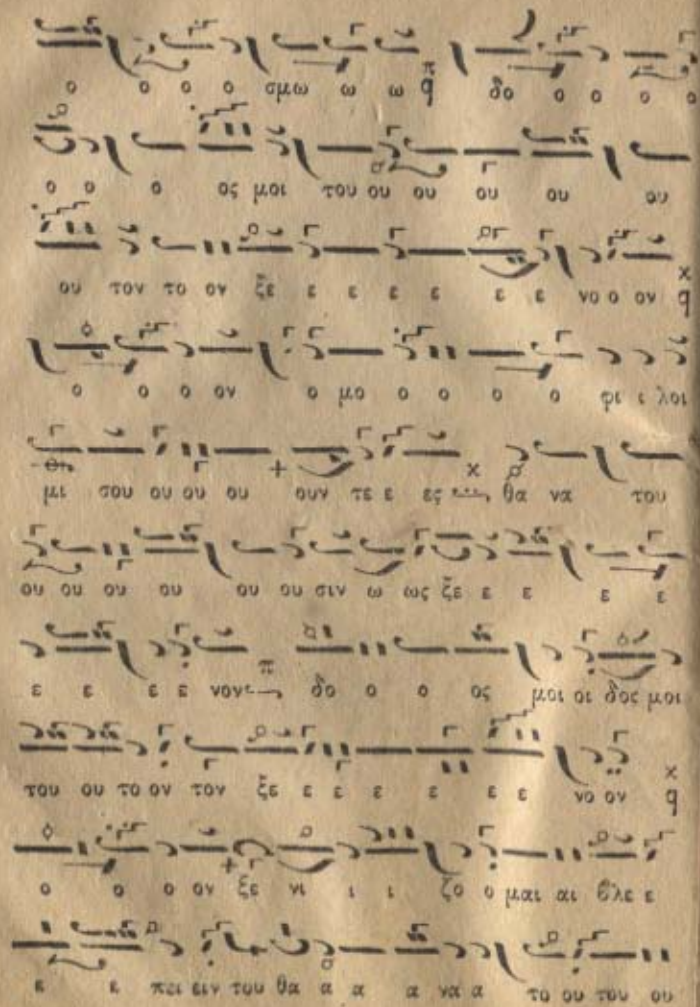 ο ο ο ο σμω ω ω π̈ q δο ο ο ο ο
ο ο ο ος μοι του ου ου ου ου ου
ου τον το ον ξε ε ε ε ε ε ε νο ο ον χ q
ο ο ο ον ο μο ο ο ο ο φι ι λοι
μι σου ου ου ου ουν τε ε ες χ θα να του
ου ου ου ου ου ου σιν ω ως ξε ε ε ε ε
ε ε ε ε νον π δο ο ο ος μοι οι δος μοι
του ου το ον τον ξε ε ε ε ε ε ε νο ον χ q
ο ο ο ον ξε νι ι ι ζο ο μαι αι βλε ε
ε ε πει ειν του θα α α α να α το ου του ου